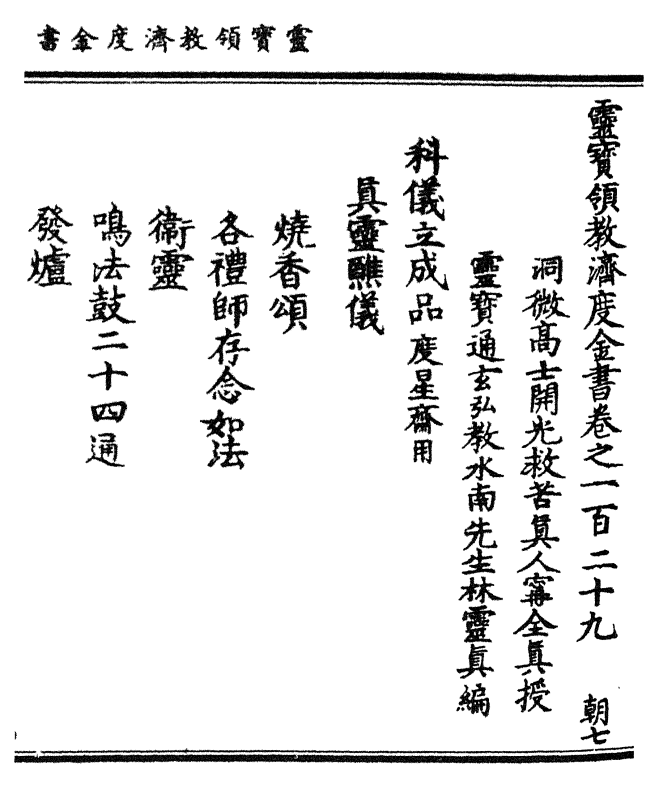 靈寶領教濟度金書
靈寶領教濟度金書卷之一百二十九 朝七
洞微高士開光救苦眞人甯全眞授
靈寶通玄弘教水南先生林靈眞編
科儀立成品度星齋用
眞靈醮儀
燒香頌
各禮師存念如法
衞靈
鳴法鼓二十四通
發爐